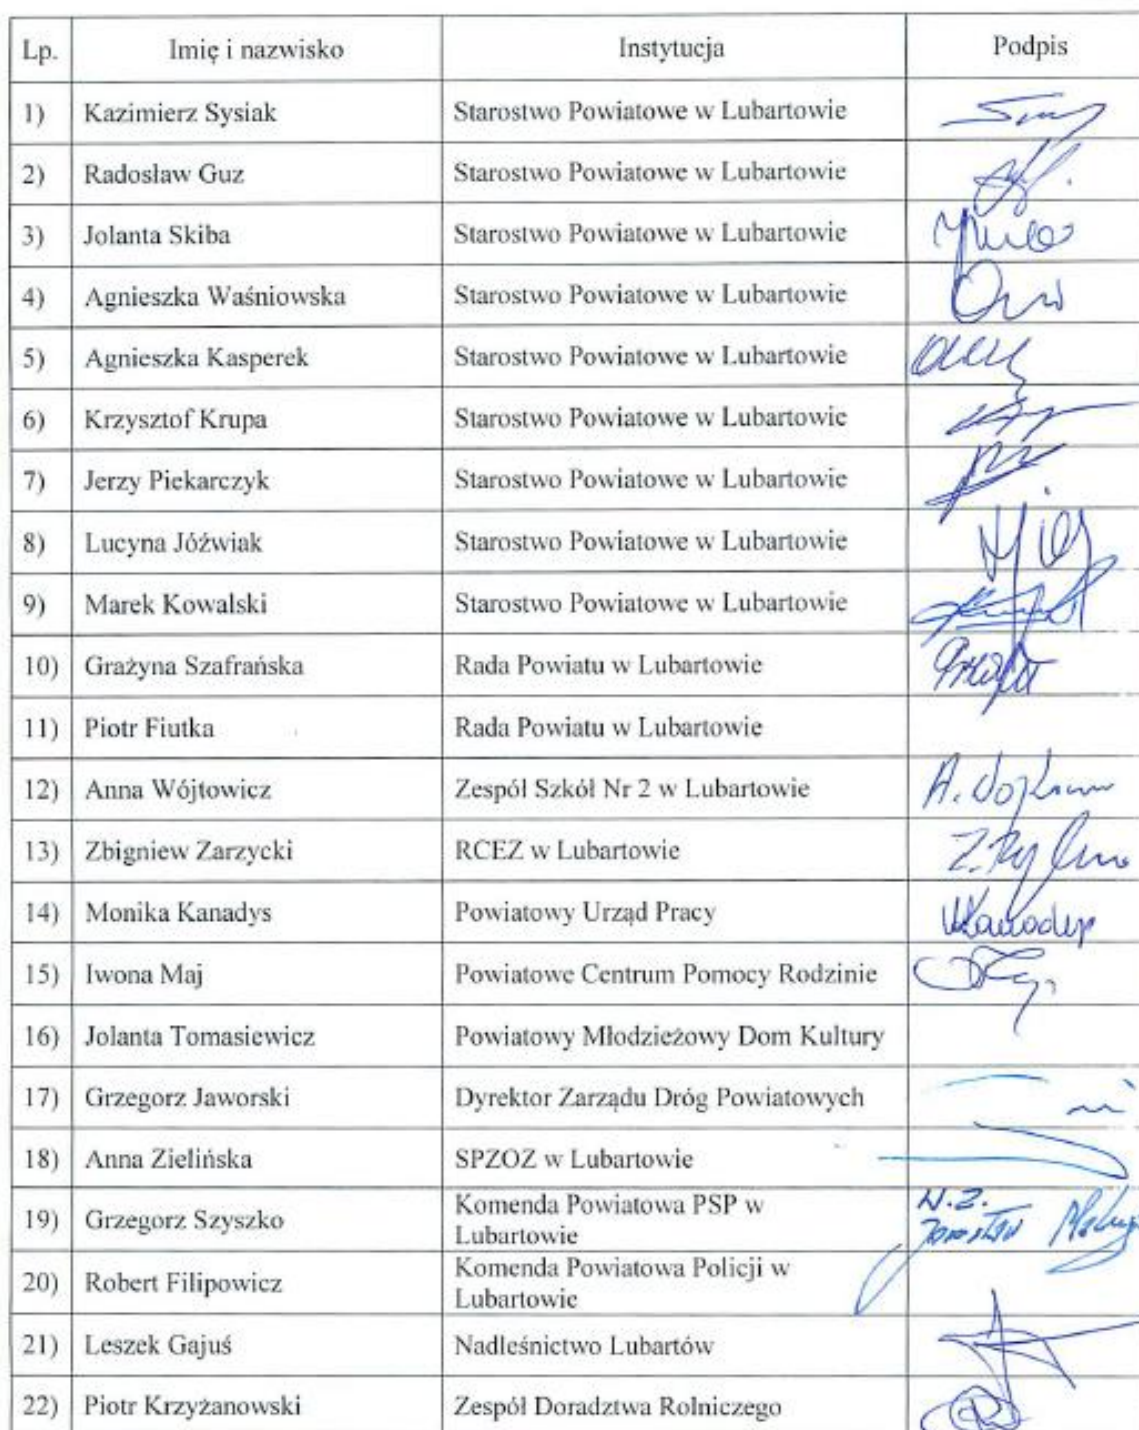 Lp. Imię i nazwisko Instytucja Podpis
1) Kazimierz Sysiak Starostwo Powiatowe w Lubartowie
2) Radosław Guz Starostwo Powiatowe w Lubartowie
3) Jolanta Skiba Starostwo Powiatowe w Lubartowie
4) Agnieszka Waśniowska Starostwo Powiatowe w Lubartowie
5) Agnieszka Kasperek Starostwo Powiatowe w Lubartowie
6) Krzysztof Krupa Starostwo Powiatowe w Lubartowie
7) Jerzy Piekarczyk Starostwo Powiatowe w Lubartowie
8) Lucyna Jóźwiak Starostwo Powiatowe w Lubartowie
9) Marek Kowalski Starostwo Powiatowe w Lubartowie
10) Grażyna Szafrańska Rada Powiatu w Lubartowie
11) Piotr Fiutka Rada Powiatu w Lubartowie
12) Anna Wójtowicz Zespół Szkół Nr 2 w Lubartowie A.
13) Zbigniew Zarzycki RCEZ w Lubartowie Z.
14) Monika Kanadys Powiatowy Urząd Pracy
15) Iwona Maj Powiatowe Centrum Pomocy Rodzinie
16) Jolanta Tomasiewicz Powiatowy Młodzieżowy Dom Kultury
17) Grzegorz Jaworski Dyrektor Zarządu Dróg Powiatowych
18) Anna Zielińska SPZOZ w Lubartowie
19) Grzegorz Szyszko Komenda Powiatowa PSP w
Lubartowie
20) Robert Filipowicz Komenda Powiatowa Policji w
Lubartowie
21) Leszek Gajuś Nadleśnictwo Lubartów
22) Piotr Krzyżanowski Zespół Doradztwa Rolniczego